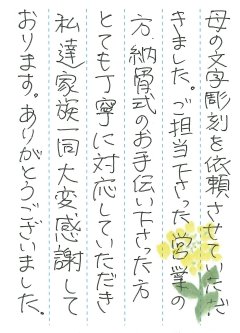 母の文字彫刻を依頼させていただ
きました。ご担当下さった営業の
方、納骨式のお手伝い下さった方
とても丁寧に対応していただき
私達家族一同大変、感謝して
おります。ありがとうございました。